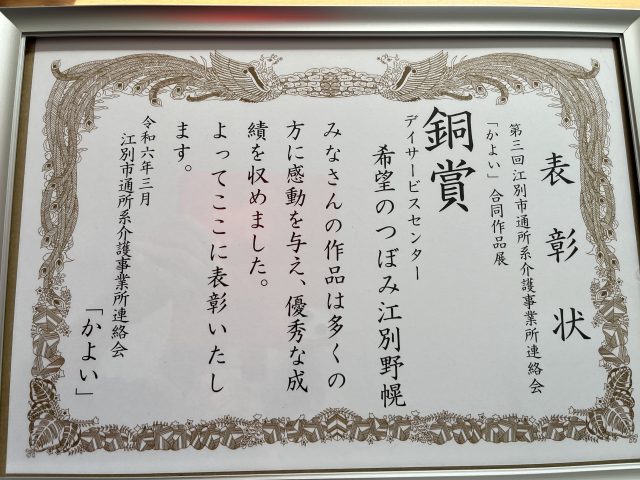 表彰状
第三回江別市通所系介護事業所連絡会
「かよい」合同作品展
銅賞
デイサービスセンター
希望のつぼみ江別野幌
みなさんの作品は多くの
方に感動を与え、優秀な成
績を収めました。
よってここに表彰いたし
ます。
令和六年三月
江別市通所系介護事業所連絡会
「かよい」